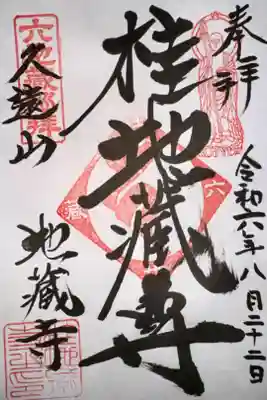 奉拝
令和六年八月二十二日
桂地蔵尊
六地蔵
久遠山
地蔵寺